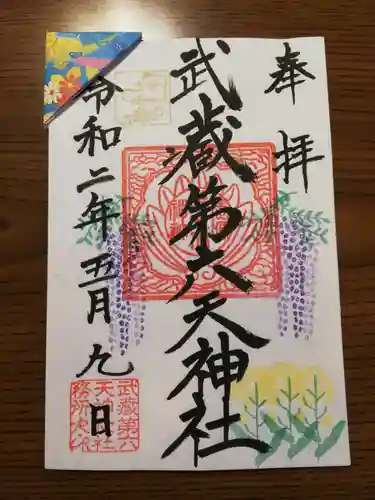 奉拝
武蔵第六天神社
令和二年五月九日
武蔵第六
天神社社
務所之印